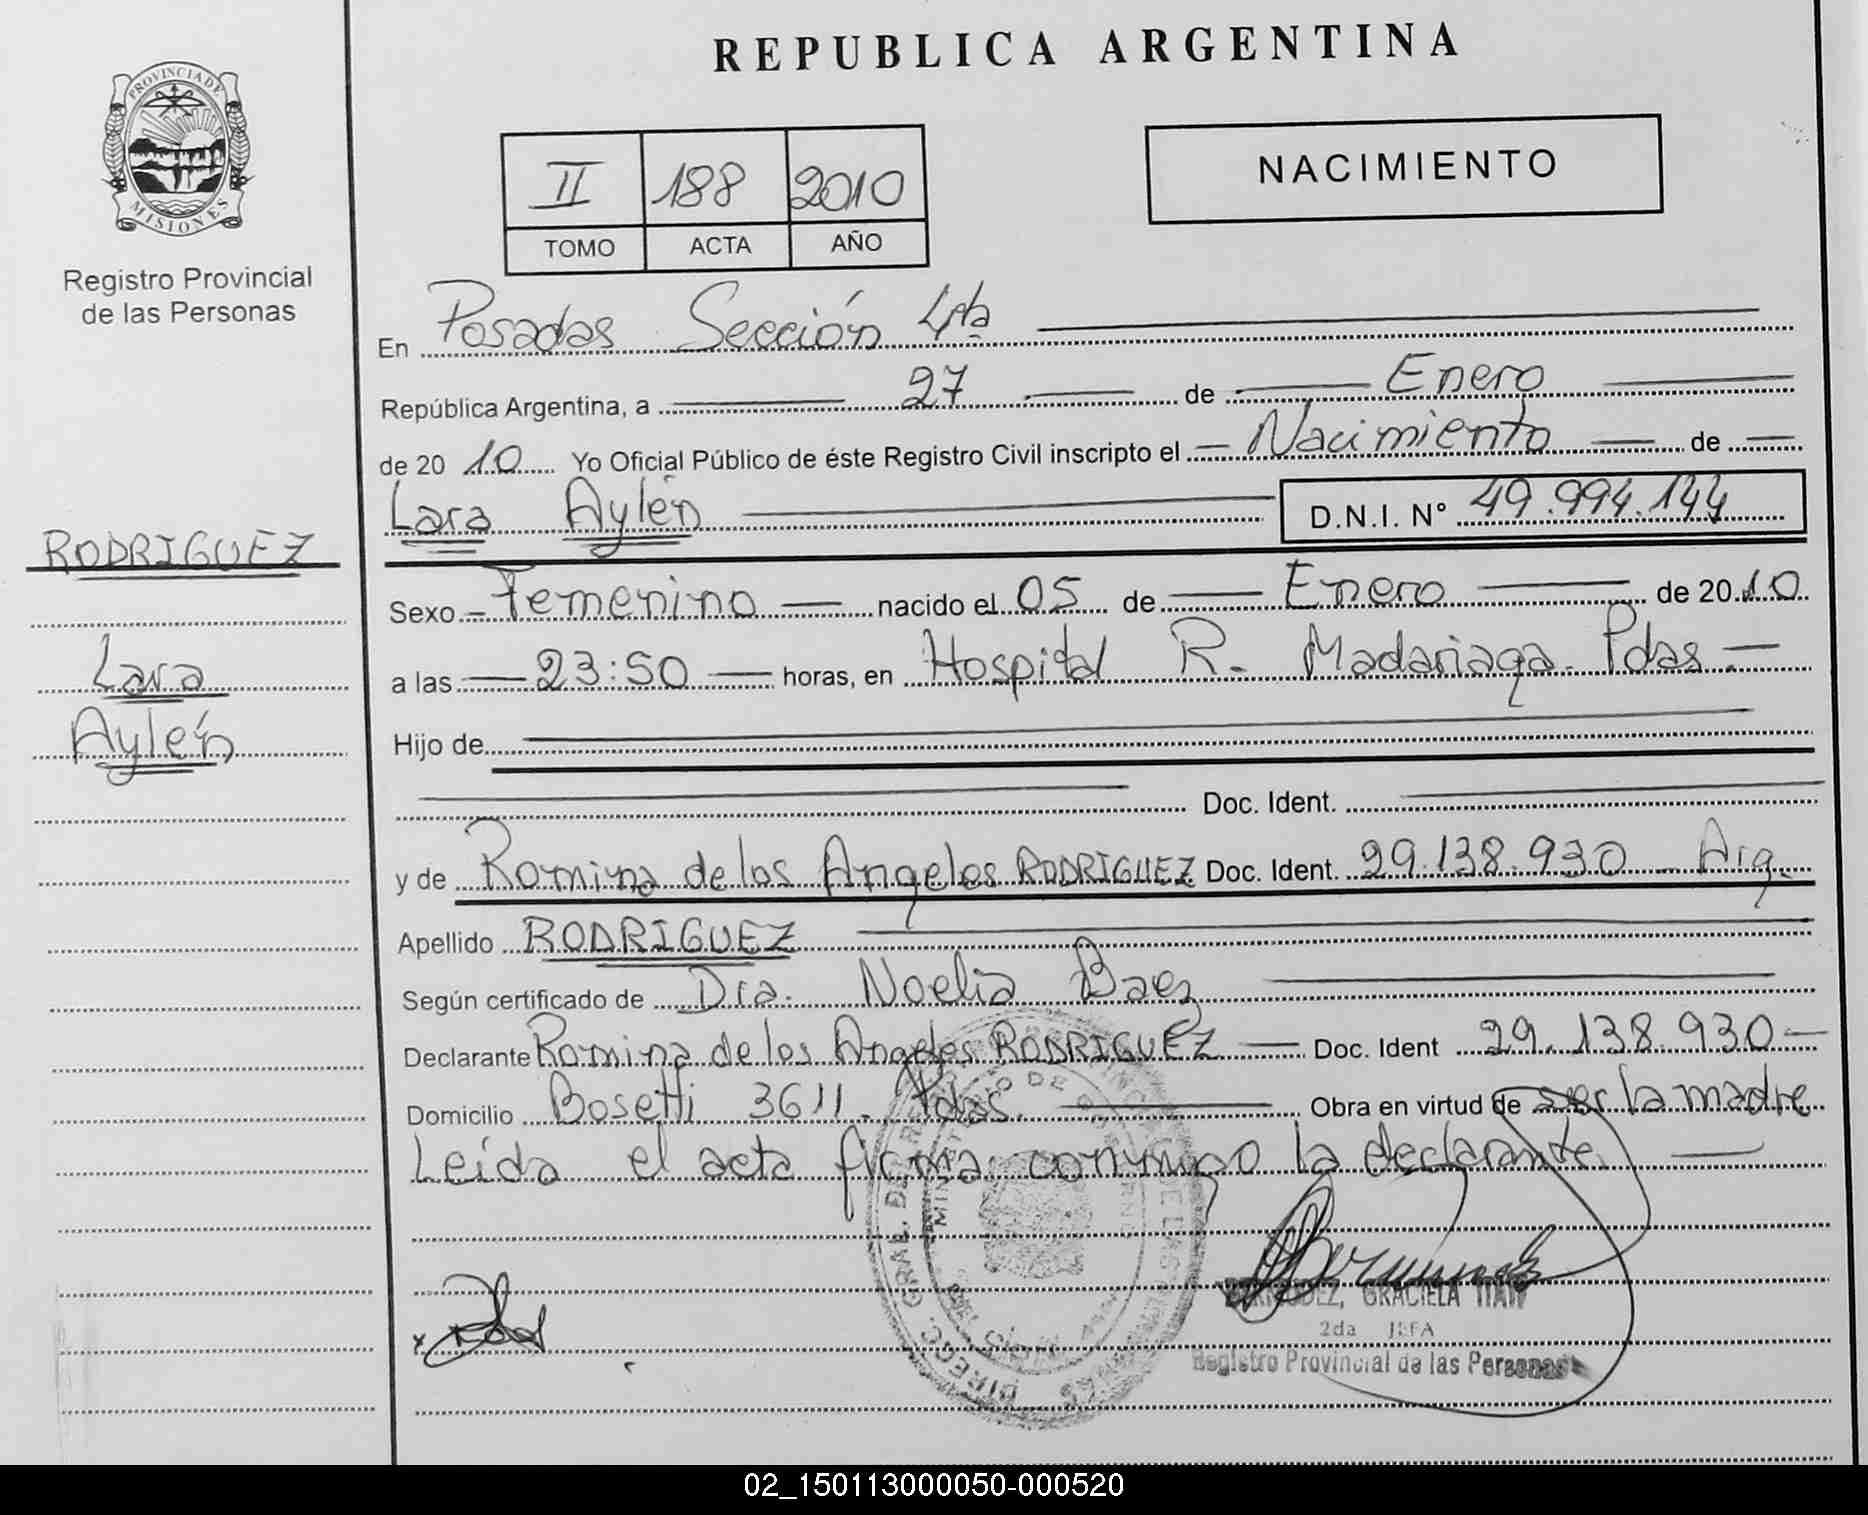 REPUBLICA ARGENTINA
PROVINCIA DE
MISIONES
Registro Provincial
de las Personas
II 188 2010
TOMO ACTA AÑO
NACIMIENTO
En Posadas Sección 4ta
República Argentina, a 27 de Enero
de 20 10 Yo Oficial Público de éste Registro Civil inscripto el Nacimiento de
Lara Aylén D.N.I. N° 49.994.144
RODRIGUEZ
Lara
Aylén
Sexo Femenino nacido el 05 de Enero de 20 10
a las 23:50 horas, en Hospital R. Madariaga. Pdas.
Hijo de
Doc. Ident.
y de Romina de los Angeles RODRIGUEZ Doc. Ident. 29.138.930 Arg.
Apellido RODRIGUEZ
Según certificado de Dra. Noelia Baez
Declarante Romina de los Angeles RODRIGUEZ Doc. Ident 29.138.930
Domicilio Bosetti 3611. Pdas. Obra en virtud de ser la madre
Leida el acta firma conmigo la declarante.
GRACIELA
2da JEFA
Registro Provincial de las Personas
02_150113000050-000520